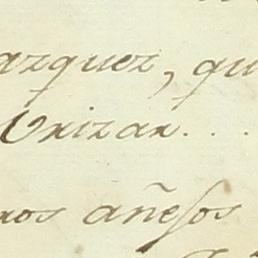 azquez, qu
Urizar...
ros añesos